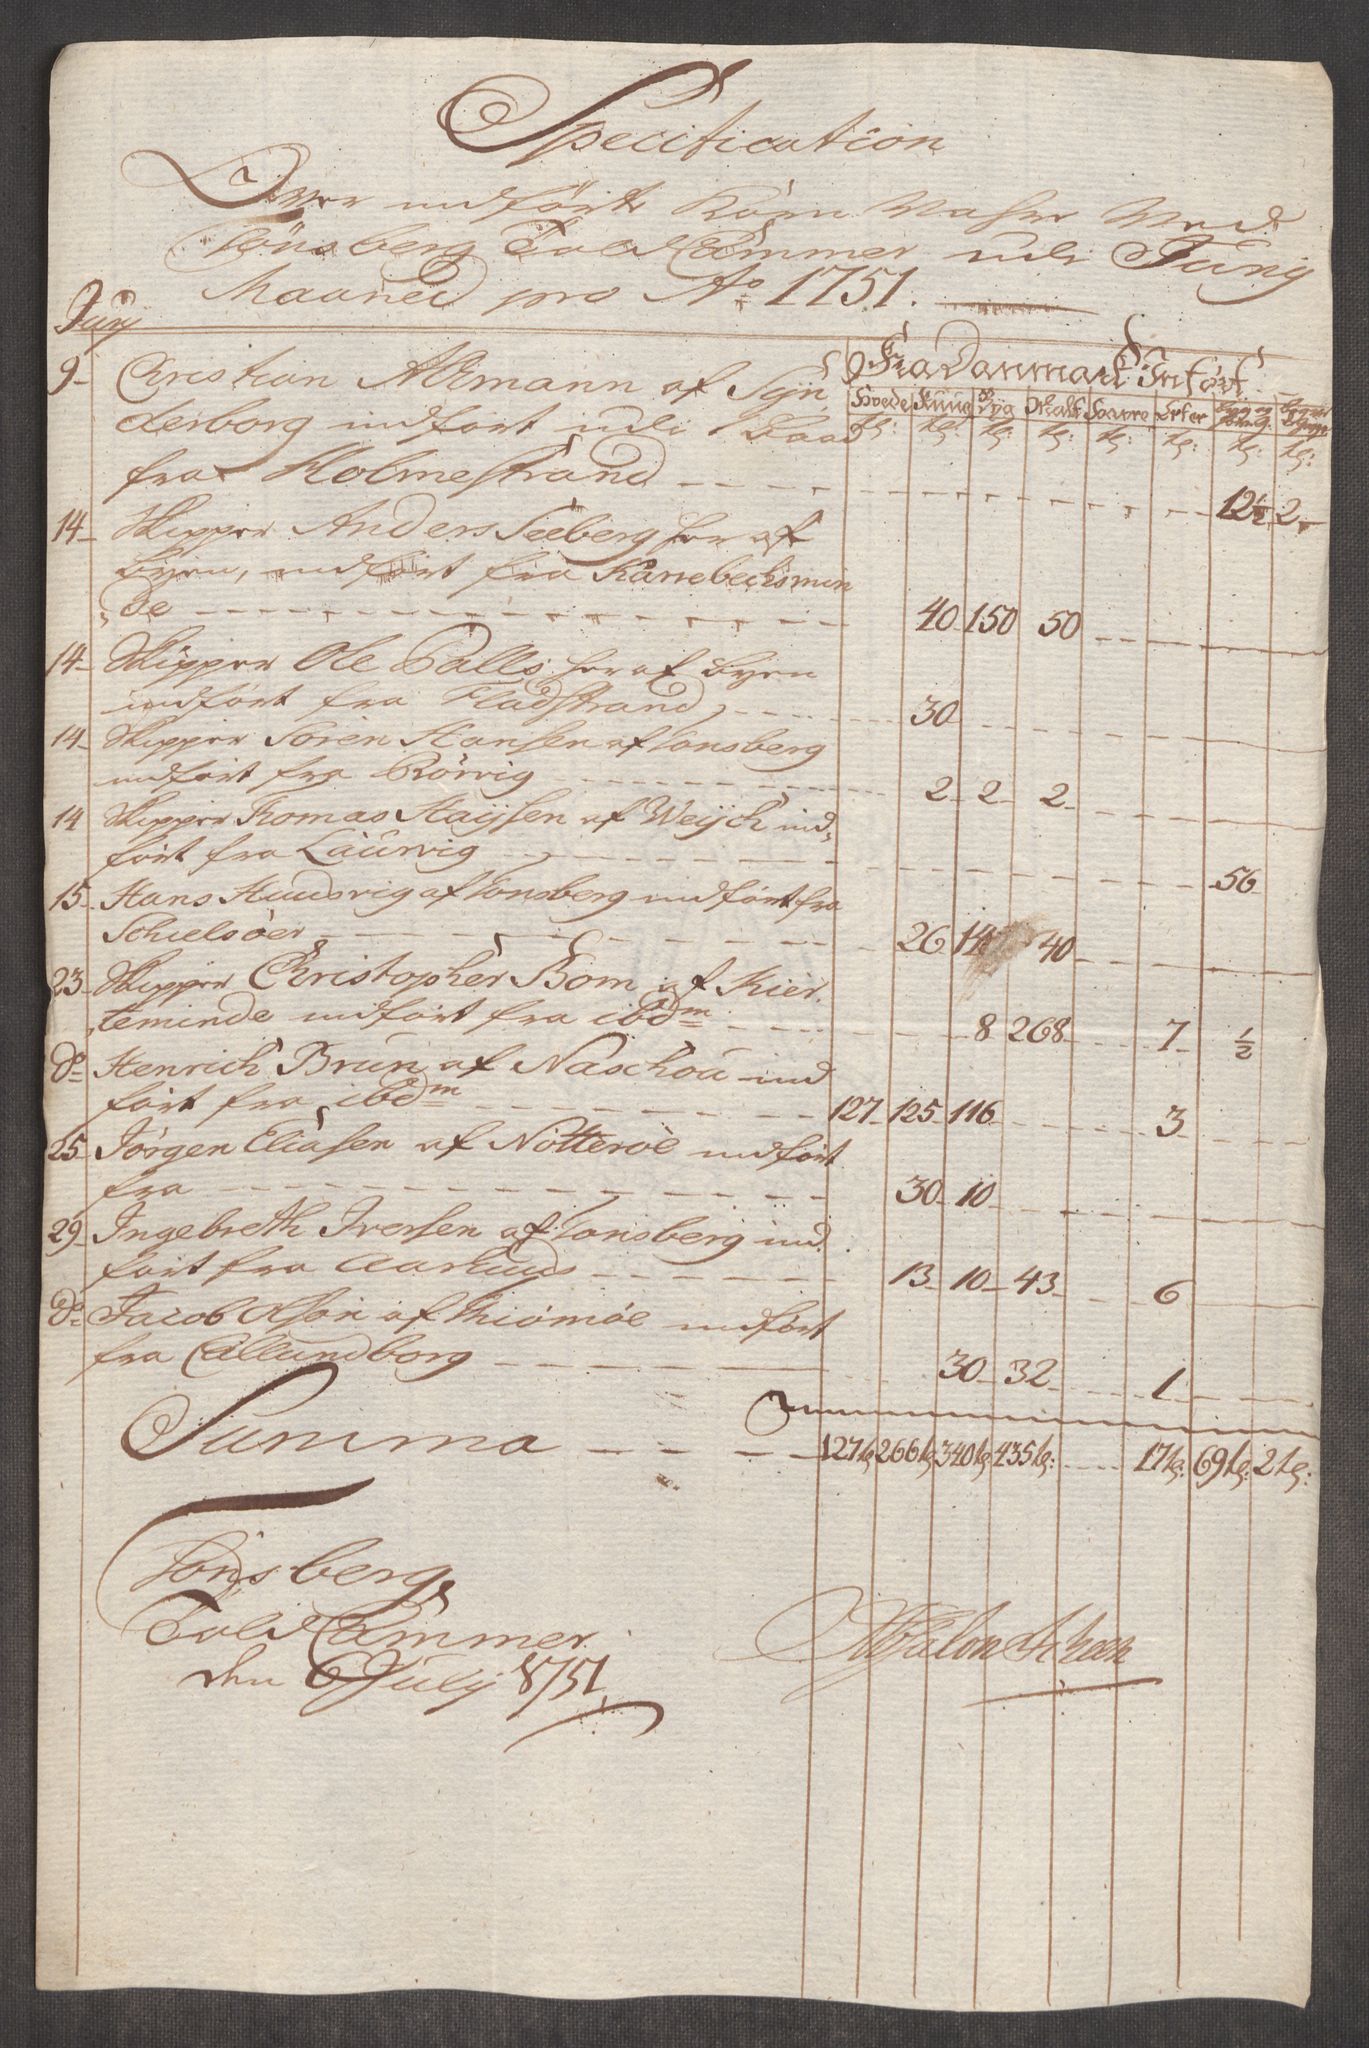 Specification
Over indført Korn Vahre Ved
Tönsberg Told Cammer udi Junij
Maaned pro Ao 1751.
Junij
Fra Danmark Infört
Hvede Ruug Byg Malt Haure Erter Byg og
tr: tr: tr: tr: tr: tr: tr: tr:
9 Christian Altmann af Syn
derborg indfört udi 1 Baad
fra Holmestrand 12½ 2
14 Skipper Anders Seeberg her af
byen, indfört fra Karrebecksmin
de 40 150 50
14 Skipper Ole Palls her af byen
indfört fra Fladstrand 30
14 Skipper Sören Hansen af Tonsberg
indfört fra Rörvig 2 2 2
14 Skipper Thomas Hayssen af Weÿch ind
fört fra Laurvig 56
15 Hans Hundsvig af Tonsberg indfört fra
Schielsöer 26 14 40
23 Skipper Christopher Bom af Kier
teminde indfört fra ibdm 8 268 7 ½
do Henrich Brun af Naschou ind
fört fra ibdm 127 125 116 3
25 Jörgen Eliasen af Nötteröe indfört
fra 30 10
29 Ingebreth Iversen af Tonsberg ind
fört fra Aarhuus 13 10 43 6
do Jacob Olsön af Kiömöe indfört
fra Callundborg 30 32 1
Summa 127tr 266tr 340tr 435tr: 17tr: 69tr: 2tr:
Tönsberg
Told Cammer
den 6 July 1751
Absalon